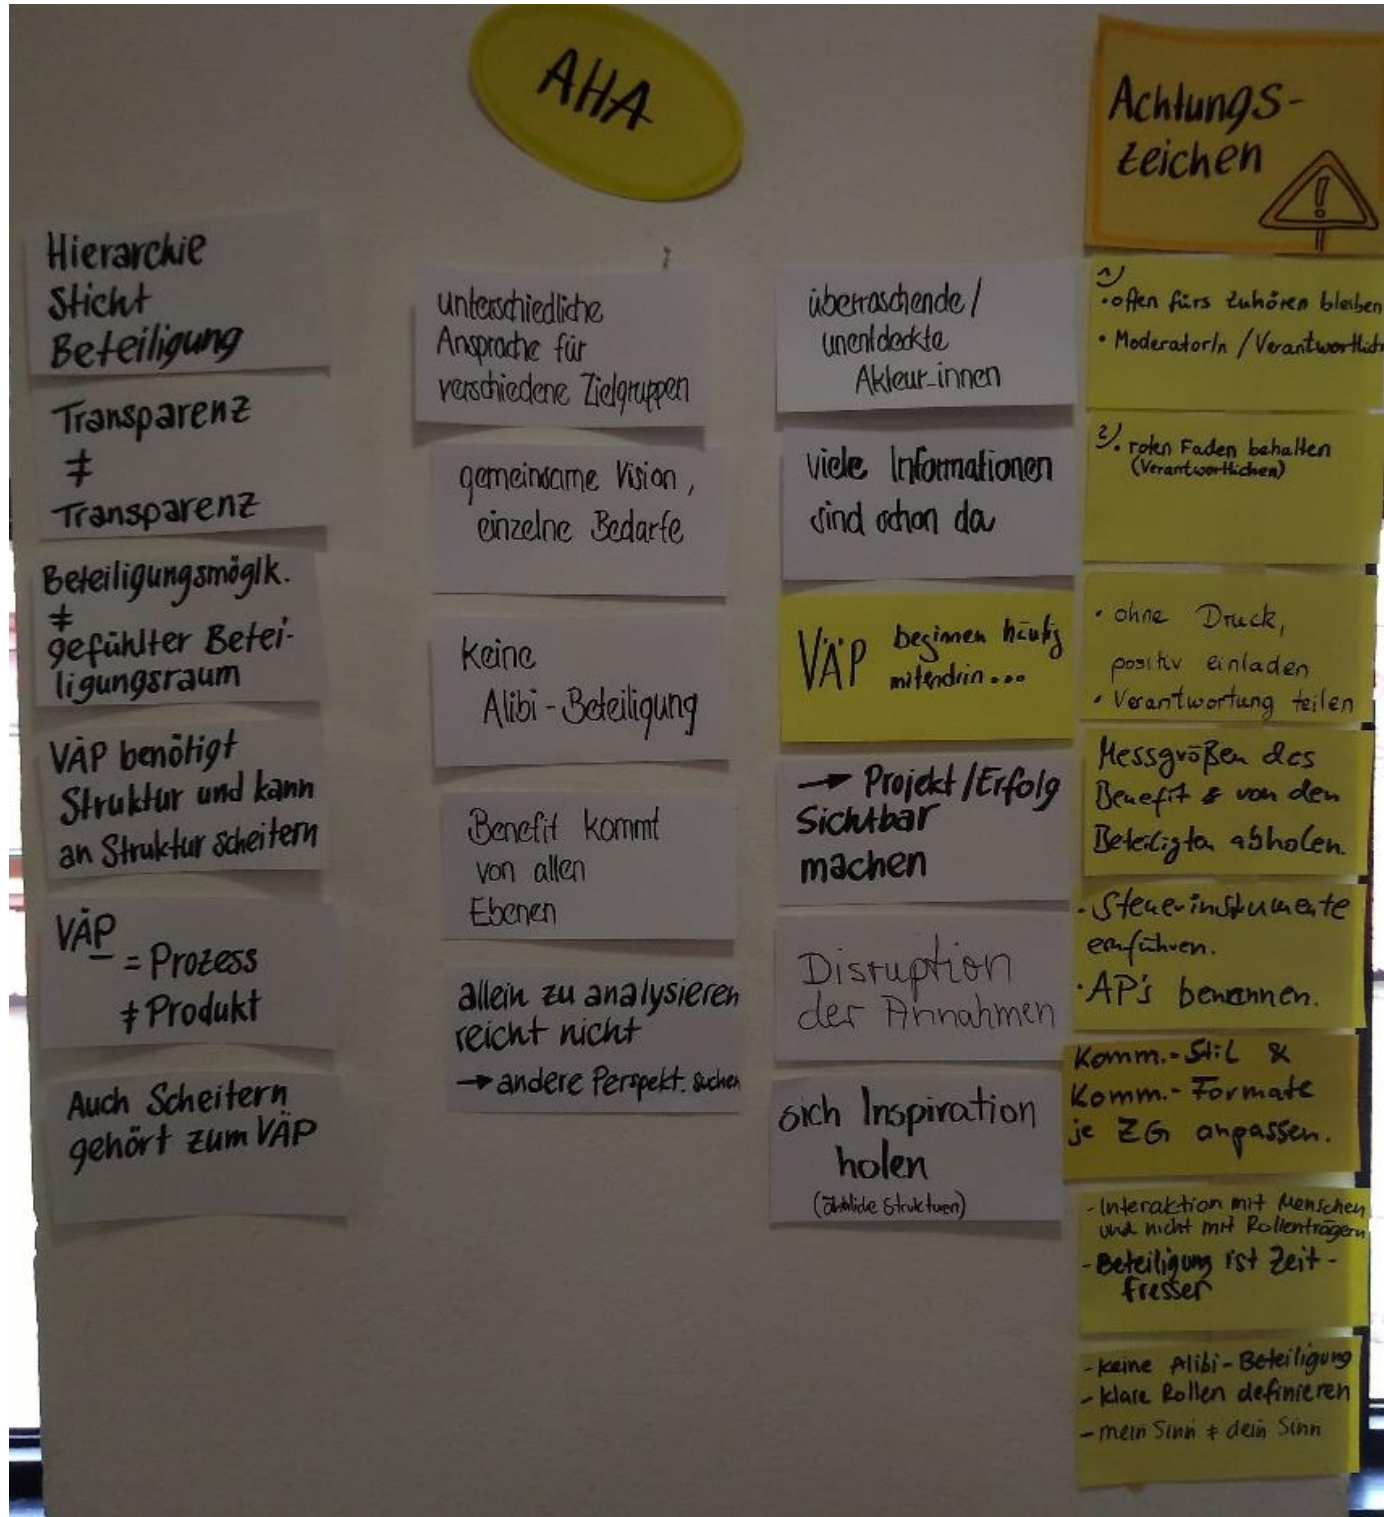 AHA
Hierarchie
Sticht
Beteiligung
Transparenz
≠
Transparenz
Beteiligungsmöglk.
≠
gefühlter Betei-
ligungsraum
VÄP benötigt
Struktur und kann
an Struktur scheitern
VÄP
= Prozess
≠ Produkt
Auch Scheitern
gehört zum VÄP
unterschiedliche
Ansprache für
verschiedene Zielgruppen
gemeinsame Vision,
einzelne Bedarfe
Keine
Alibi-Beteiligung
Benefit kommt
von allen
Ebenen
allein zu analysieren
reicht nicht
→ andere Perspekt. suchen
überraschende/
unentdeckte
Akteur_innen
viele Informationen
sind schon da
VÄP beginnen häufig
mitendrin...
→ Projekt/Erfolg
Sichtbar
machen
Disruption
der Annahmen
sich Inspiration
holen
(ähnliche Strukturen)
Achtungs-
zeichen
!
1)
• offen fürs Zuhören bleiben
• ModeratorIn / Verantwortlich
2) • roten Faden behalten
(Verantwortlichen)
• ohne Druck,
positiv einladen
• Verantwortung teilen
Messgrößen des
Benefit & von den
Beteiligten abholen.
• Steuerinstrumente
einführen.
• AP's benennen.
Komm.-Stil &
Komm.-Formate
je ZG anpassen.
- Interaktion mit Menschen
und nicht mit Rollenträgern
- Beteiligung ist Zeit-
fresser
- keine Alibi-Beteiligung
- klare Rollen definieren
- mein Sinn ≠ dein Sinn